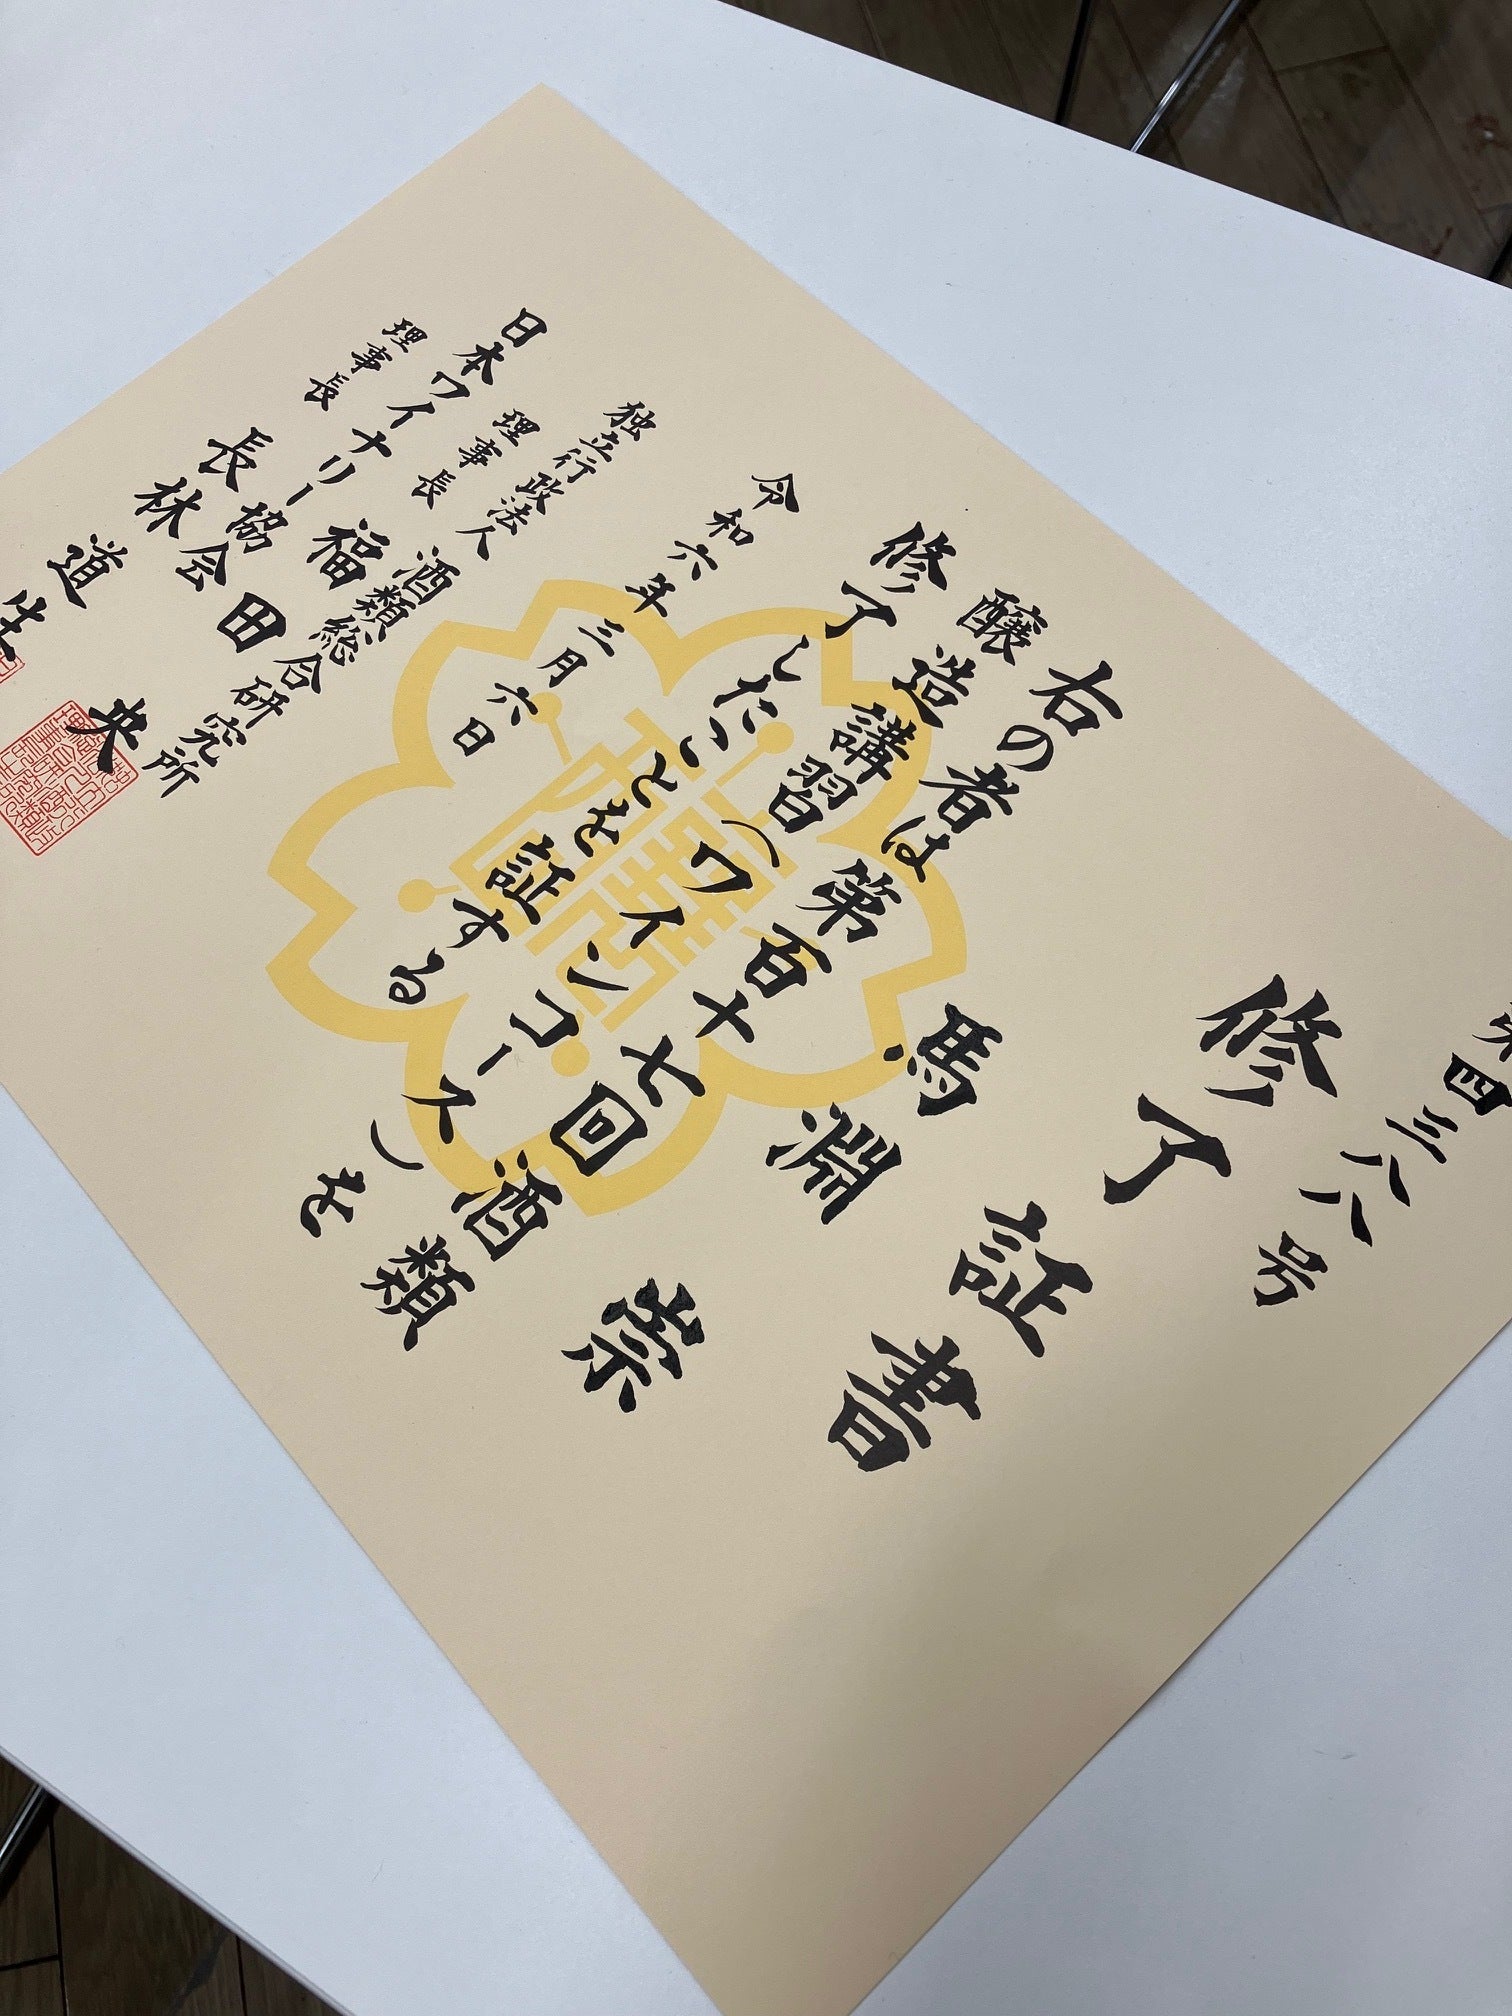 第四三八八号
修了証書
馬淵 崇
右の者は第百十七回酒類
醸造講習(ワインコース)を
修了したことを証する
令和六年三月六日
独立行政法人 酒類総合研究所
理事長 福田 央
日本ワイナリー協会
理事長 長林 道生